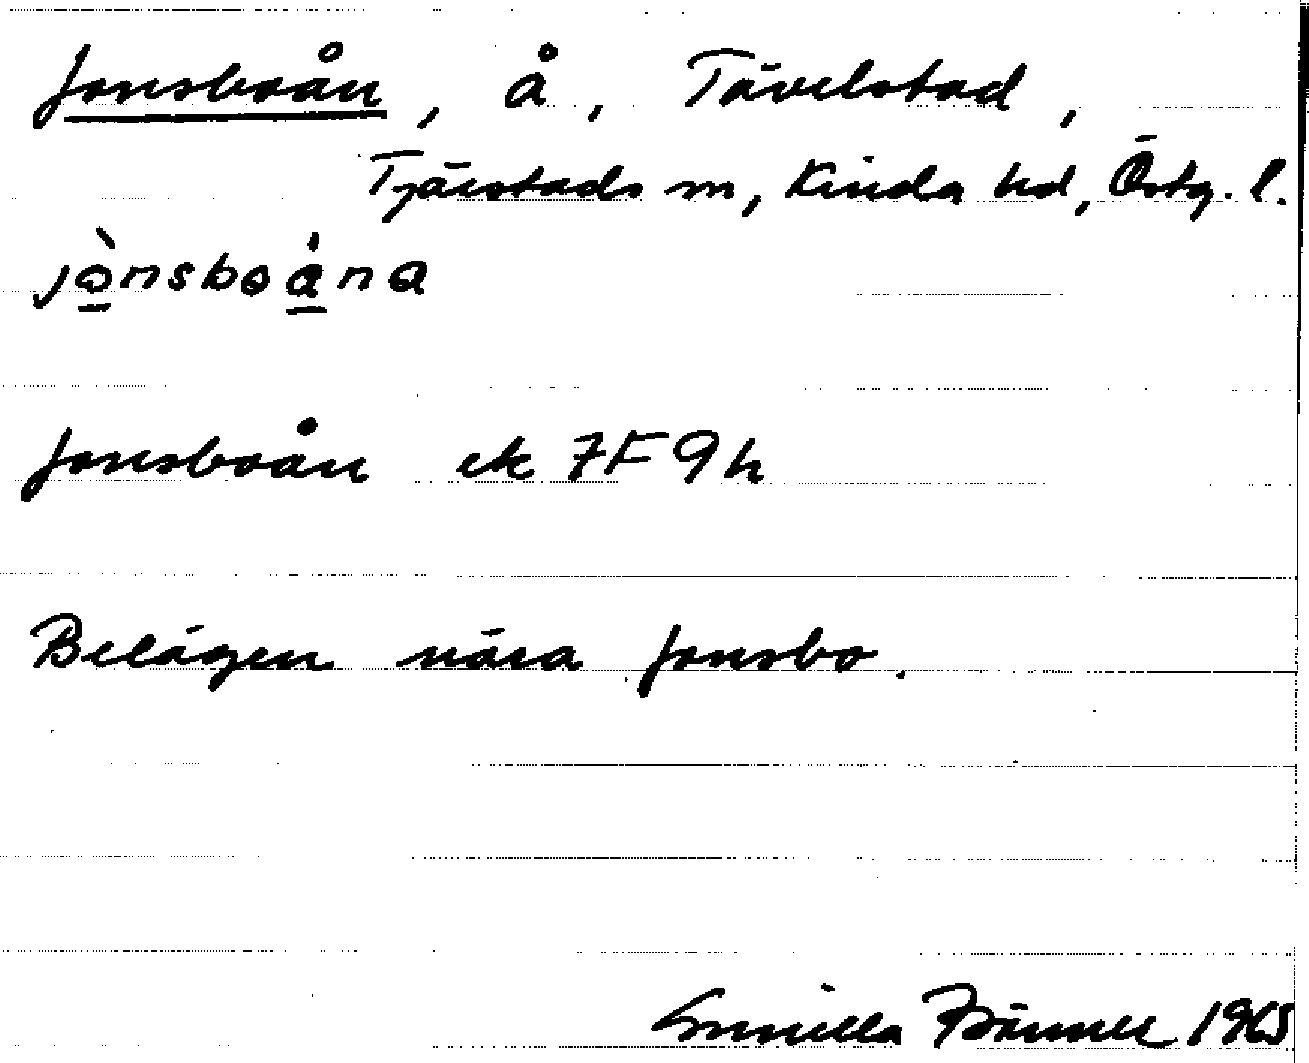 Jonsboån, å, Tävelstad,
Tjärstads sn, Kinda hd, Östg. l.
jònsboåna
Jonsboån ek 7F9h
Belägen nära Jonsbo.
Gunilla 1965